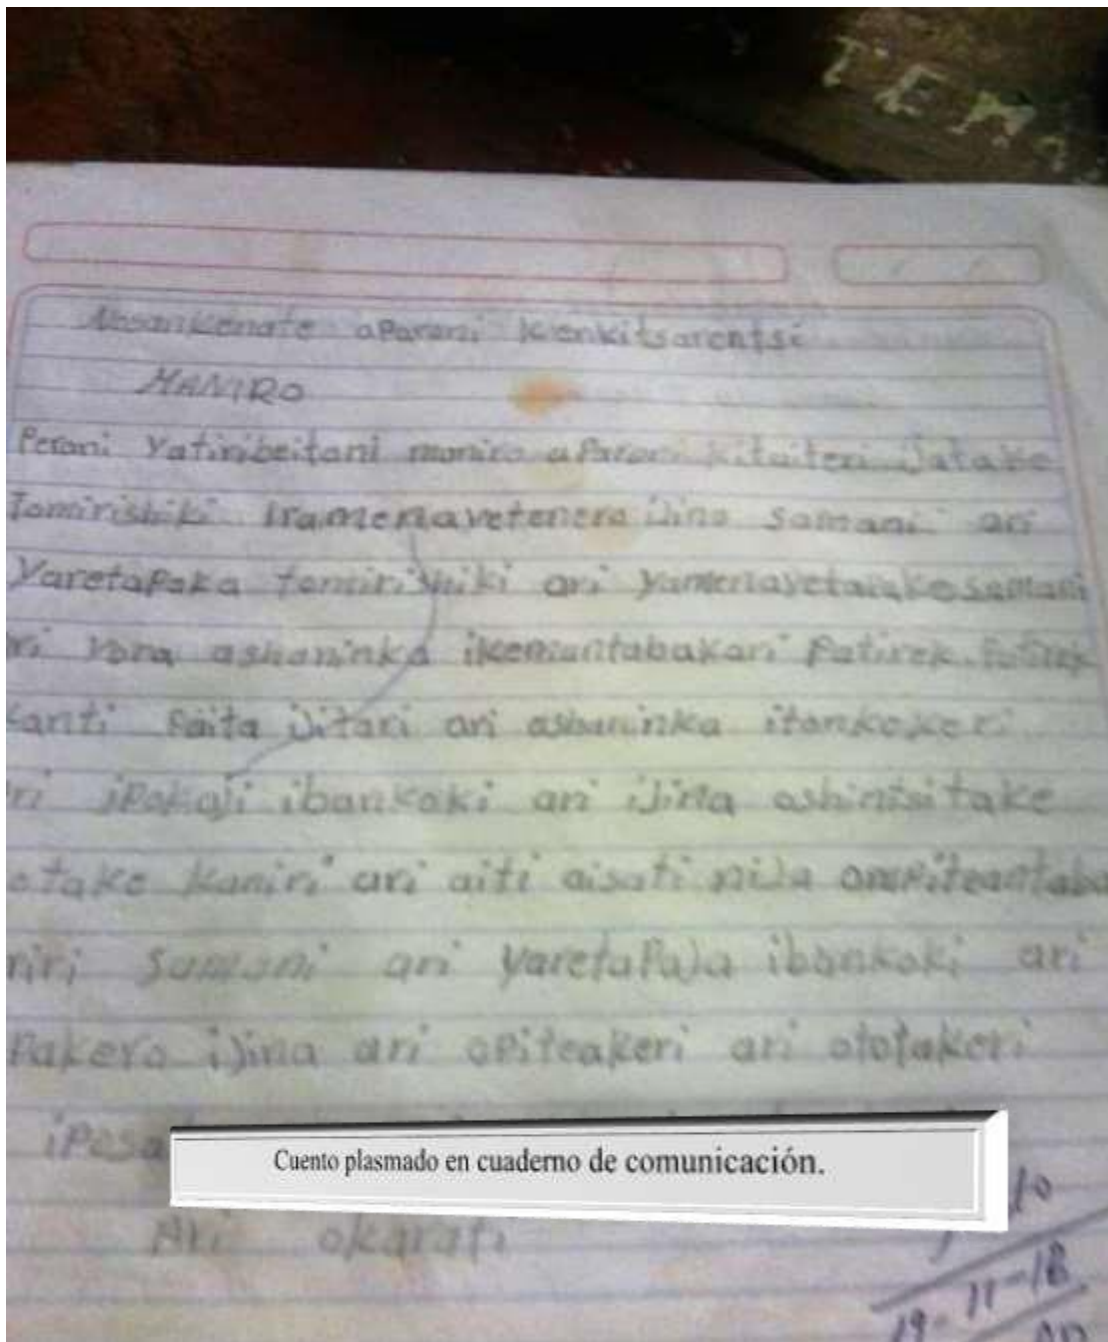 TEMA
aparani kenkitsarentsi
MANIRO
Perani Yatiribeitani maniro aparani kitaiteri ijatake
Tomirishiki iramenavetenero ijina samani ari
Yaretapaka tomirishiki ari yamenavetapake samani
ri yora ashaninka ikemantabakari patirek patirek
kanti paita ijitari ari ashaninka itonkokeri
ri ipokaji ibankoki ari ijina oshintsitake
otake kaniri ari aiti aisati nija
niri samani ari yaretapaja ibankoki ari
pakero ijina ari opiteakeri ari ototakeri
Cuento plasmado en cuaderno de comunicación.
Ari okarati
10
19-11-18